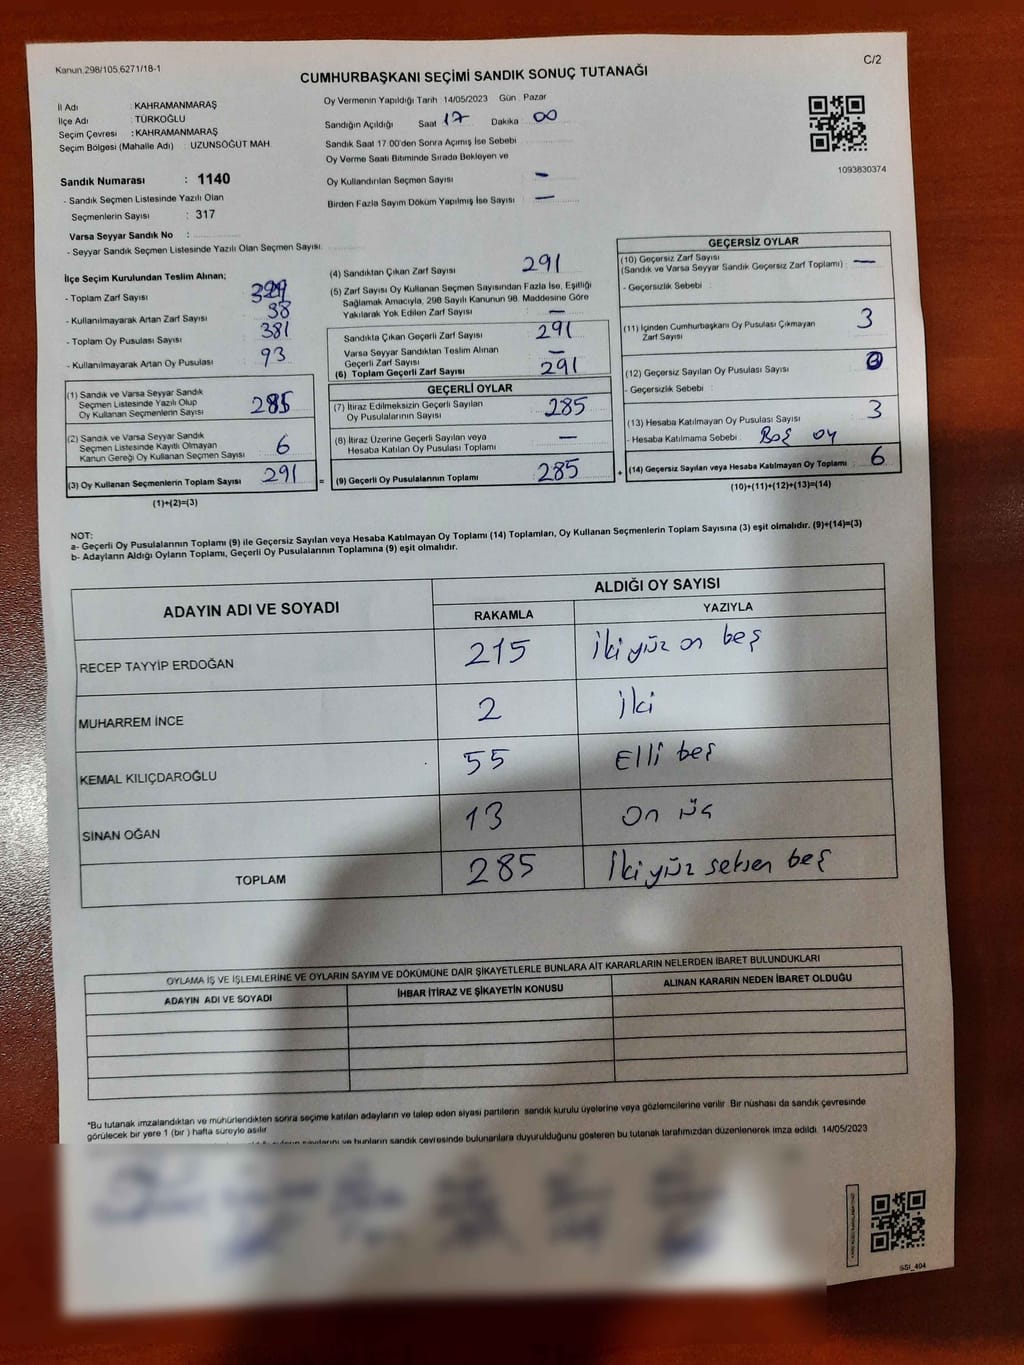 Kanun,298/105.6271/18-1
C/2
CUMHURBAŞKANI SEÇİMİ SANDIK SONUÇ TUTANAĞI
İl Adı : KAHRAMANMARAŞ
İlçe Adı : TÜRKOĞLU
Seçim Çevresi : KAHRAMANMARAŞ
Seçim Bölgesi (Mahalle Adı) : UZUNSÖĞÜT MAH.
Sandık Numarası : 1140
- Sandık Seçmen Listesinde Yazılı Olan
Seçmenlerin Sayısı : 317
Varsa Seyyar Sandık No :
- Seyyar Sandık Seçmen Listesinde Yazılı Olan Seçmen Sayısı:
Oy Vermenin Yapıldığı Tarih 14/05/2023 Gün : Pazar
Sandığın Açıldığı Saat 17 Dakika 00
Sandık Saat 17.00'den Sonra Açımış İse Sebebi
Oy Verme Saati Bitiminde Sırada Bekleyen ve
Oy Kullandırılan Seçmen Sayısı –
Birden Fazla Sayım Döküm Yapılmış İse Sayısı –
1093830374
İlçe Seçim Kurulundan Teslim Alınan;
- Toplam Zarf Sayısı
- Kullanılmayarak Artan Zarf Sayısı 38
- Toplam Oy Pusulası Sayısı 381
- Kullanılmayarak Artan Oy Pusulası 93
(1) Sandık ve Varsa Seyyar Sandık
Seçmen Listesinde Yazılı Olup
Oy Kullanan Seçmenlerin Sayısı 285
(2) Sandık ve Varsa Seyyar Sandık
Seçmen Listesinde Kayıtlı Olmayan
Kanun Gereği Oy Kullanan Seçmen Sayısı 6
(3) Oy Kullanan Seçmenlerin Toplam Sayısı 291 =
(1)+(2)=(3)
(4) Sandıktan Çıkan Zarf Sayısı 291
(5) Zarf Sayısı Oy Kullanan Seçmen Sayısından Fazla İse, Eşitliği
Sağlamak Amacıyla, 298 Sayılı Kanunun 98. Maddesine Göre
Yakılarak Yok Edilen Zarf Sayısı –
Sandıkta Çıkan Geçerli Zarf Sayısı 291
Varsa Seyyar Sandıktan Teslim Alınan
Geçerli Zarf Sayısı –
(6) Toplam Geçerli Zarf Sayısı 291
GEÇERLİ OYLAR
(7) İtiraz Edilmeksizin Geçerli Sayılan
Oy Pusulalarının Sayısı 285
(8) İtiraz Üzerine Geçerli Sayılan veya
Hesaba Katılan Oy Pusulası Toplamı –
(9) Geçerli Oy Pusulalarının Toplamı 285 +
GEÇERSİZ OYLAR
(10) Geçersiz Zarf Sayısı
(Sandık ve Varsa Seyyar Sandık Geçersiz Zarf Toplamı) : –
- Geçersizlik Sebebi :
(11) İçinden Cumhurbaşkanı Oy Pusulası Çıkmayan
Zarf Sayısı 3
(12) Geçersiz Sayılan Oy Pusulası Sayısı
- Geçersizlik Sebebi :
(13) Hesaba Katılmayan Oy Pusulası Sayısı 3
- Hesaba Katılmama Sebebi : Boş oy
(14) Geçersiz Sayılan veya Hesaba Katılmayan Oy Toplamı 6
(10)+(11)+(12)+(13)=(14)
NOT:
a- Geçerli Oy Pusulalarının Toplamı (9) ile Geçersiz Sayılan veya Hesaba Katılmayan Oy Toplamı (14) Toplamları, Oy Kullanan Seçmenlerin Toplam Sayısına (3) eşit olmalıdır. (9)+(14)=(3)
b- Adayların Aldığı Oyların Toplamı, Geçerli Oy Pusulalarının Toplamına (9) eşit olmalıdır.
ADAYIN ADI VE SOYADI
ALDIĞI OY SAYISI
RAKAMLA YAZIYLA
RECEP TAYYİP ERDOĞAN 215 İki yüz on beş
MUHARREM İNCE 2 İki
KEMAL KILIÇDAROĞLU 55 Elli beş
SİNAN OĞAN 13 On üç
TOPLAM 285 İki yüz seksen beş
OYLAMA İŞ VE İŞLEMLERİNE VE OYLARIN SAYIM VE DÖKÜMÜNE DAİR ŞİKAYETLERLE BUNLARA AİT KARARLARIN NELERDEN İBARET BULUNDUKLARI
ADAYIN ADI VE SOYADI İHBAR İTİRAZ VE ŞİKAYETİN KONUSU ALINAN KARARIN NEDEN İBARET OLDUĞU
*Bu tutanak imzalandıktan ve mühürlendikten sonra seçime katılan adayların ve talep eden siyasi partilerin sandık kurulu üyelerine veya gözlemcilerine verilir. Bir nüshası da sandık çevresinde
görülecek bir yere 1 (bir) hafta süreyle asılır.
ve bunların sandık çevresinde bulunanlara duyurulduğunu gösteren bu tutanak tarafımızdan düzenlenerek imza edildi. 14/05/2023
SSI_404